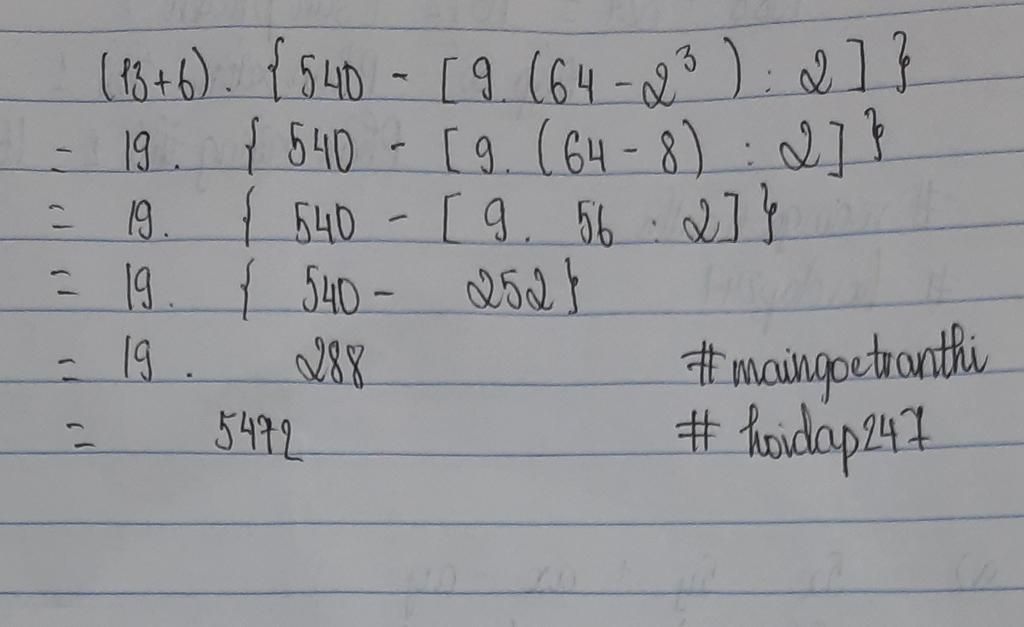 (13+6). { 540 - [ 9. (64 - 2³ ) : 2 ] }
= 19. { 540 - [ 9. (64 - 8) : 2 ] }
= 19. { 540 - [ 9. 56 : 2 ] }
= 19. { 540 - 252 }
= 19 . 288 #maingoctranthi
= 5472 # hoidap247